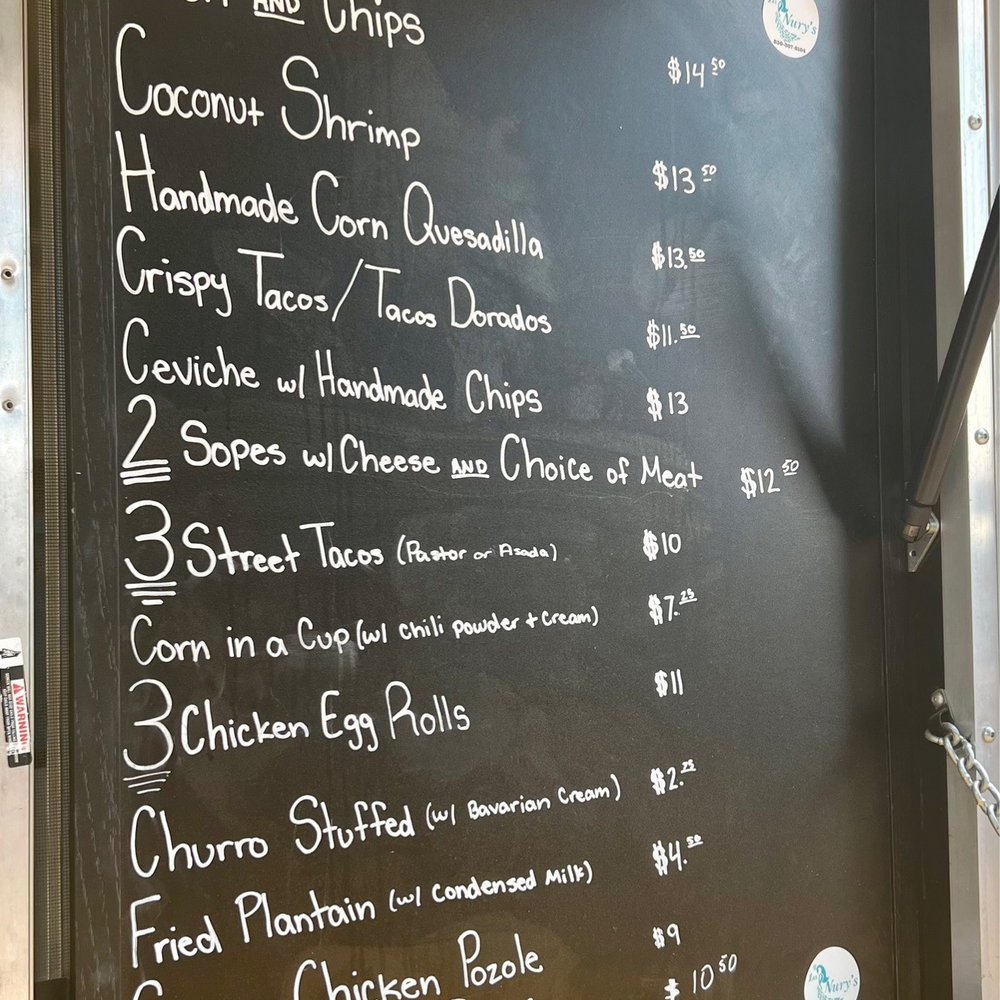 AND Chips $14.50
Nury's
830-307-8104
Coconut Shrimp $13.50
Handmade Corn Quesadilla $13.50
Crispy Tacos/Tacos Dorados $11.50
Ceviche w/ Handmade Chips $13
2 Sopes w/ Cheese AND Choice of Meat $12.50
3 Street Tacos (Pastor or Asada) $10
Corn in a Cup (w/ chili powder + cream) $7.25
3 Chicken Egg Rolls $11
Churro Stuffed (w/ Bavarian Cream) $2.25
Fried Plantain (w/ Condensed Milk) $4.50
Chicken Pozole $9
$10.50
Nury's
WARNING